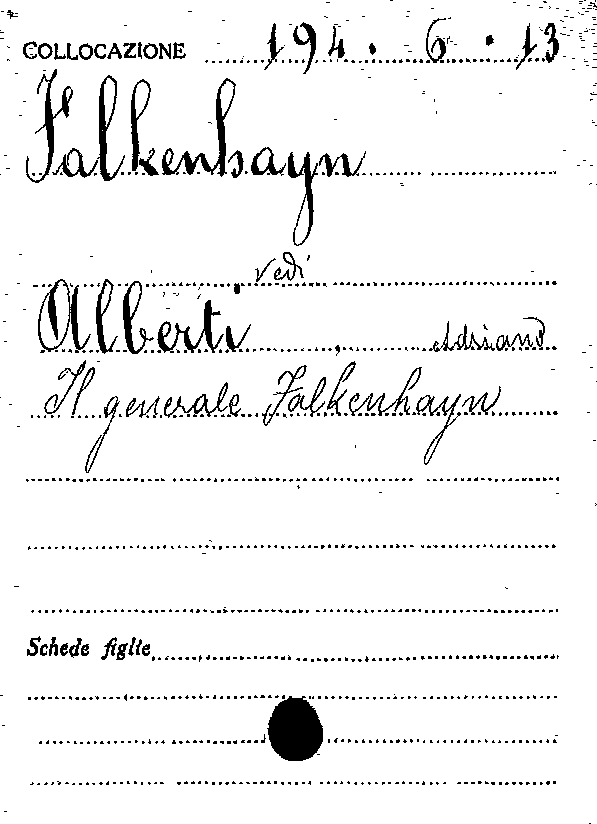 COLLOCAZIONE 194. 6. 13
Falkenhayn
vedi
Alberti, Adriano
Il generale Falkenhayn
Schede figlie